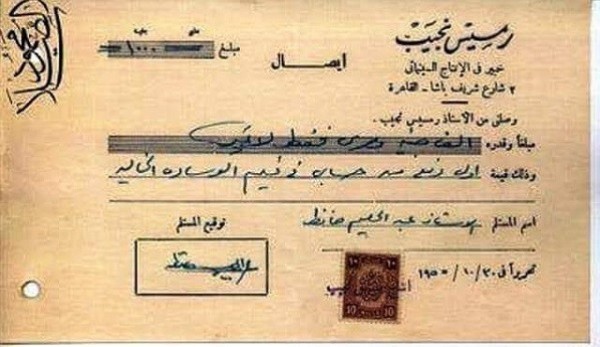 رمسيس نجيب
خبير فى الإنتاج السينمائى
٣ شارع شريف باشا - القاهرة
مليم جنيه
مبلغ ١٠٠٠
ايصال
وصلنى من الاستاذ رمسيس نجيب .
مبلغاً وقدره الف جنيه مصرى فقط لاغير
وذلك قيمة اول دفعه من حسابى فى فيلم الوساده الخاليه
اسم المستلم الاستاذ عبد الحليم حافظ
توقيع المستلم
تحريراً فى ٣٠ / ١٠ / ١٩٥٥
١٠ ١٠
10 10